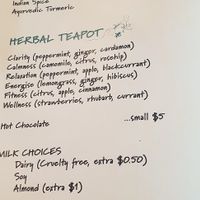 Indian Spice
Ayurvedic Turmeric
HERBAL TEAPOT
Clarity (peppermint, ginger, cardamon)
Calmness (camomile, citrus, rosehip)
Relaxation (peppermint, apple, blackcurrant)
Energise (lemongrass, ginger, hibiscus)
Fitness (citrus, apple, cinnamon)
Wellness (strawberries, rhubarb, currant)
Hot Chocolate ...small $5
MILK CHOICES
Dairy (Cruelty free, extra $0.50)
Soy
Almond (extra $1)